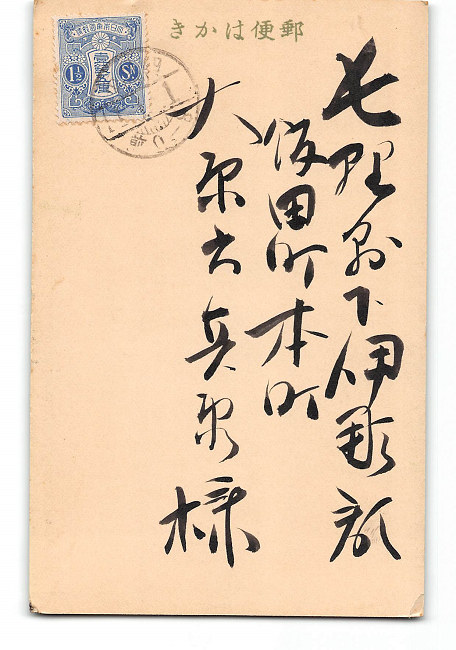 きかは便郵
長野県下伊那郡
飯田町本町
大原吉兵衛様
大日本帝國郵便
壹錢五厘
1½ Sn